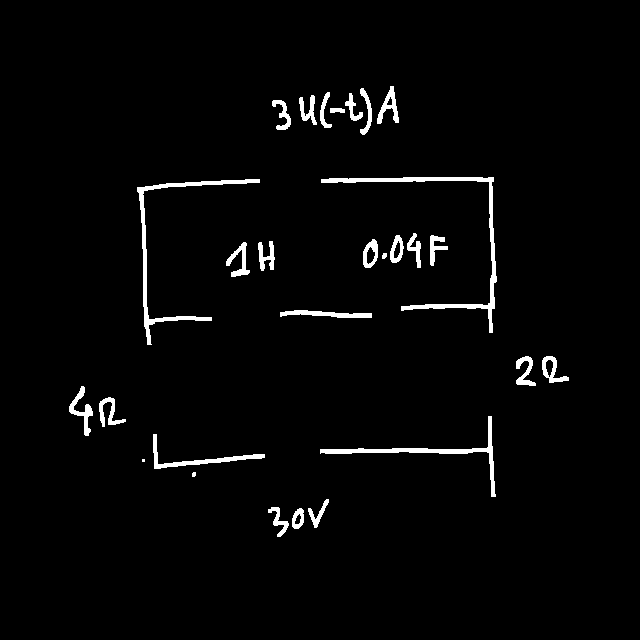 3u(-t)A
1H 0.04F
2Ω
4Ω
30V